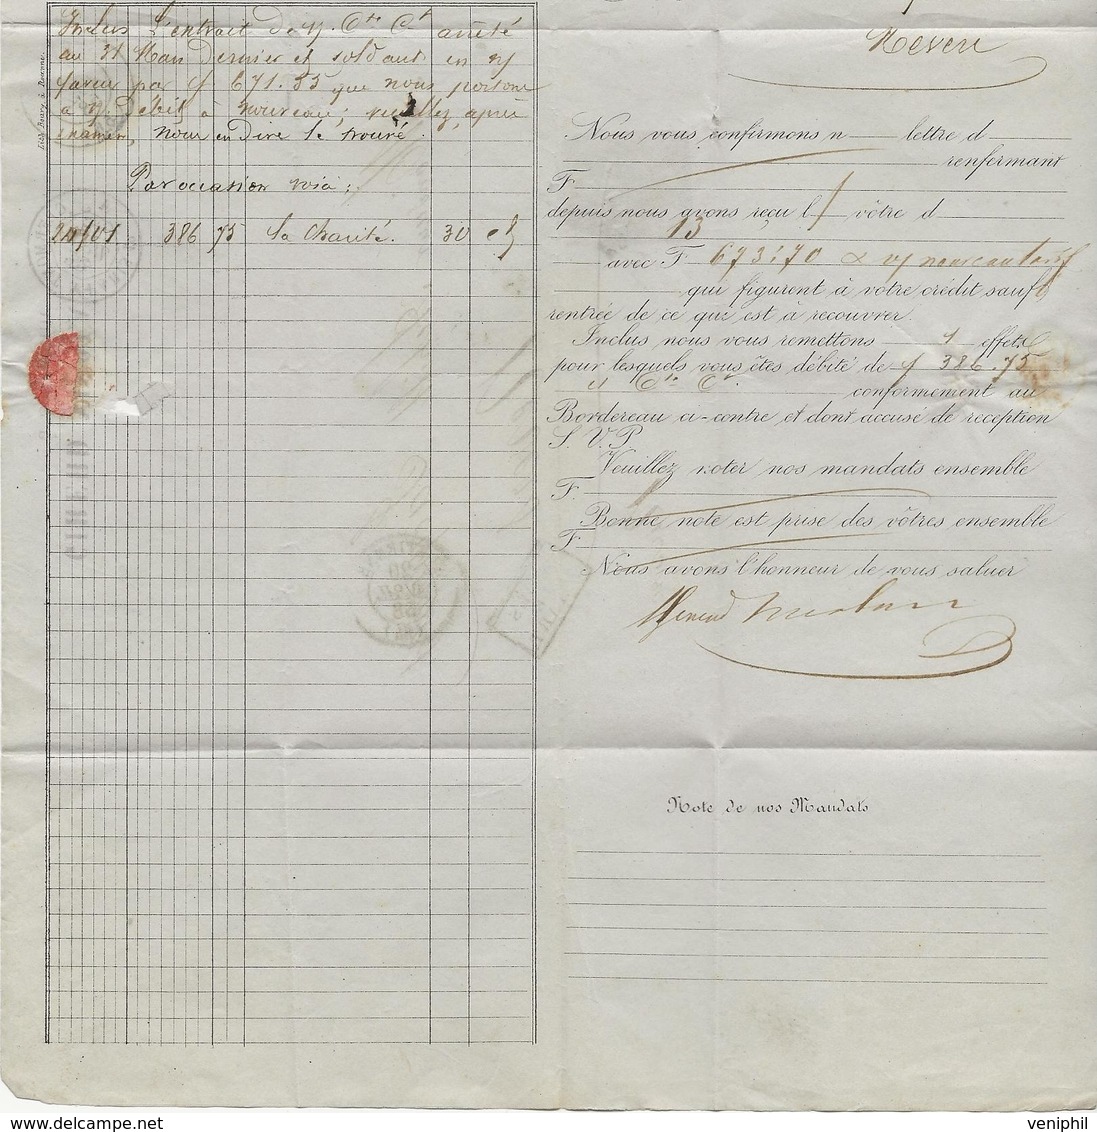 Inclus l'extrait de v. Cte Ct arrêté
au 31 Mars Dernier et soldant en v/
faveur par f 671.85 que nous portons
à v/ Debit à nouveau; veuillez, après
examen, nous en dire le trouvé.
Par occasion voià;
386 75 la Charité. 30
Nevers
Nous vous confirmons n lettre d
renfermant
F.
depuis nous avons reçu l vôtre d
13
avec F 673.70
qui figurent à votre crédit sauf
rentrée de ce qui est à recouvrer.
Inclus nous vous remettons 1 effets
pour lesquels vous êtes débité de f 386.75
Cte Ct conformement au
Bordereau ci-contre et dont accusé de reception
S. V. P.
Veuillez noter nos mandats ensemble
F.
Bonne note est prise des vôtres ensemble
F.
Nous avons l'honneur de vous saluer
Note de nos Mandats
veniphil